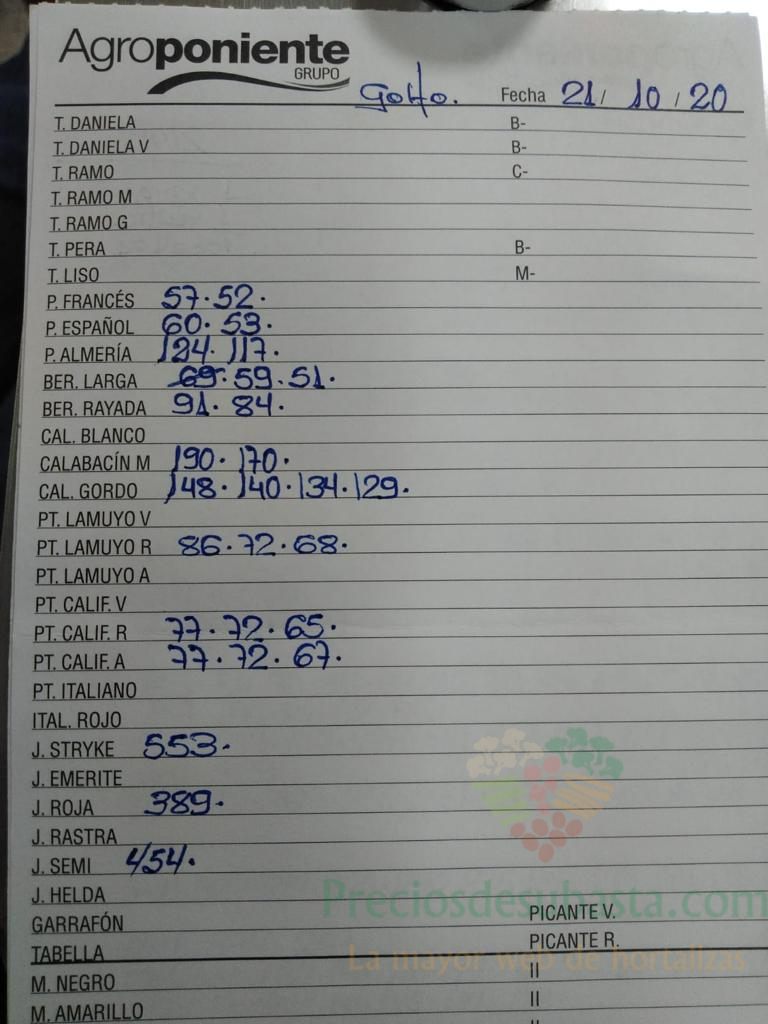 Agroponiente
GRUPO
Golfo. Fecha 21/ 10 / 20
T. DANIELA B-
T. DANIELA V B-
T. RAMO C-
T. RAMO M
T. RAMO G
T. PERA B-
T. LISO M-
P. FRANCÉS 57. 52.
P. ESPAÑOL 60. 53.
P. ALMERÍA 124. 117.
BER. LARGA 69. 59. 51.
BER. RAYADA 91. 84.
CAL. BLANCO
CALABACÍN M 190. 170.
CAL. GORDO 148. 140. 134. 129.
PT. LAMUYO V
PT. LAMUYO R 86. 72. 68.
PT. LAMUYO A
PT. CALIF. V
PT. CALIF. R 77. 72. 65.
PT. CALIF. A 77. 72. 67.
PT. ITALIANO
ITAL. ROJO
J. STRYKE 553.
J. EMERITE
J. ROJA 389.
J. RASTRA
J. SEMI 454.
J. HELDA
Preciosdesubasta.com
GARRAFÓN PICANTE V.
TABELLA PICANTE R.
La mayor web de hortalizas
M. NEGRO II
M. AMARILLO II